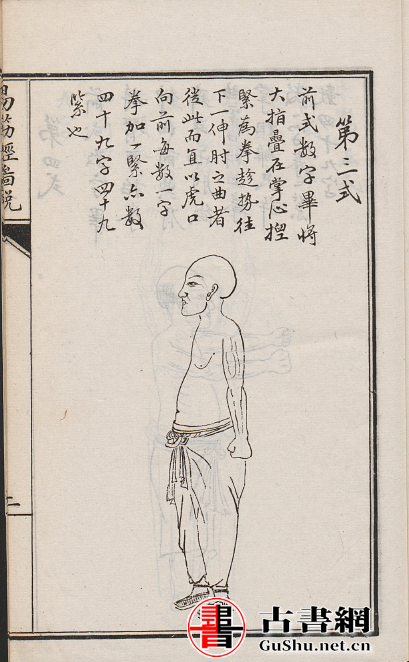 第三式
前式数字畢将
大指疊在掌心揑
緊為拳趁势往
下一伸肘之曲者
從此而直以虎口
向前每数一字
拳加一緊亦数
四十九字四十九
紧也
易筋經啚説
二
書 古書網
GuShu.net.cn